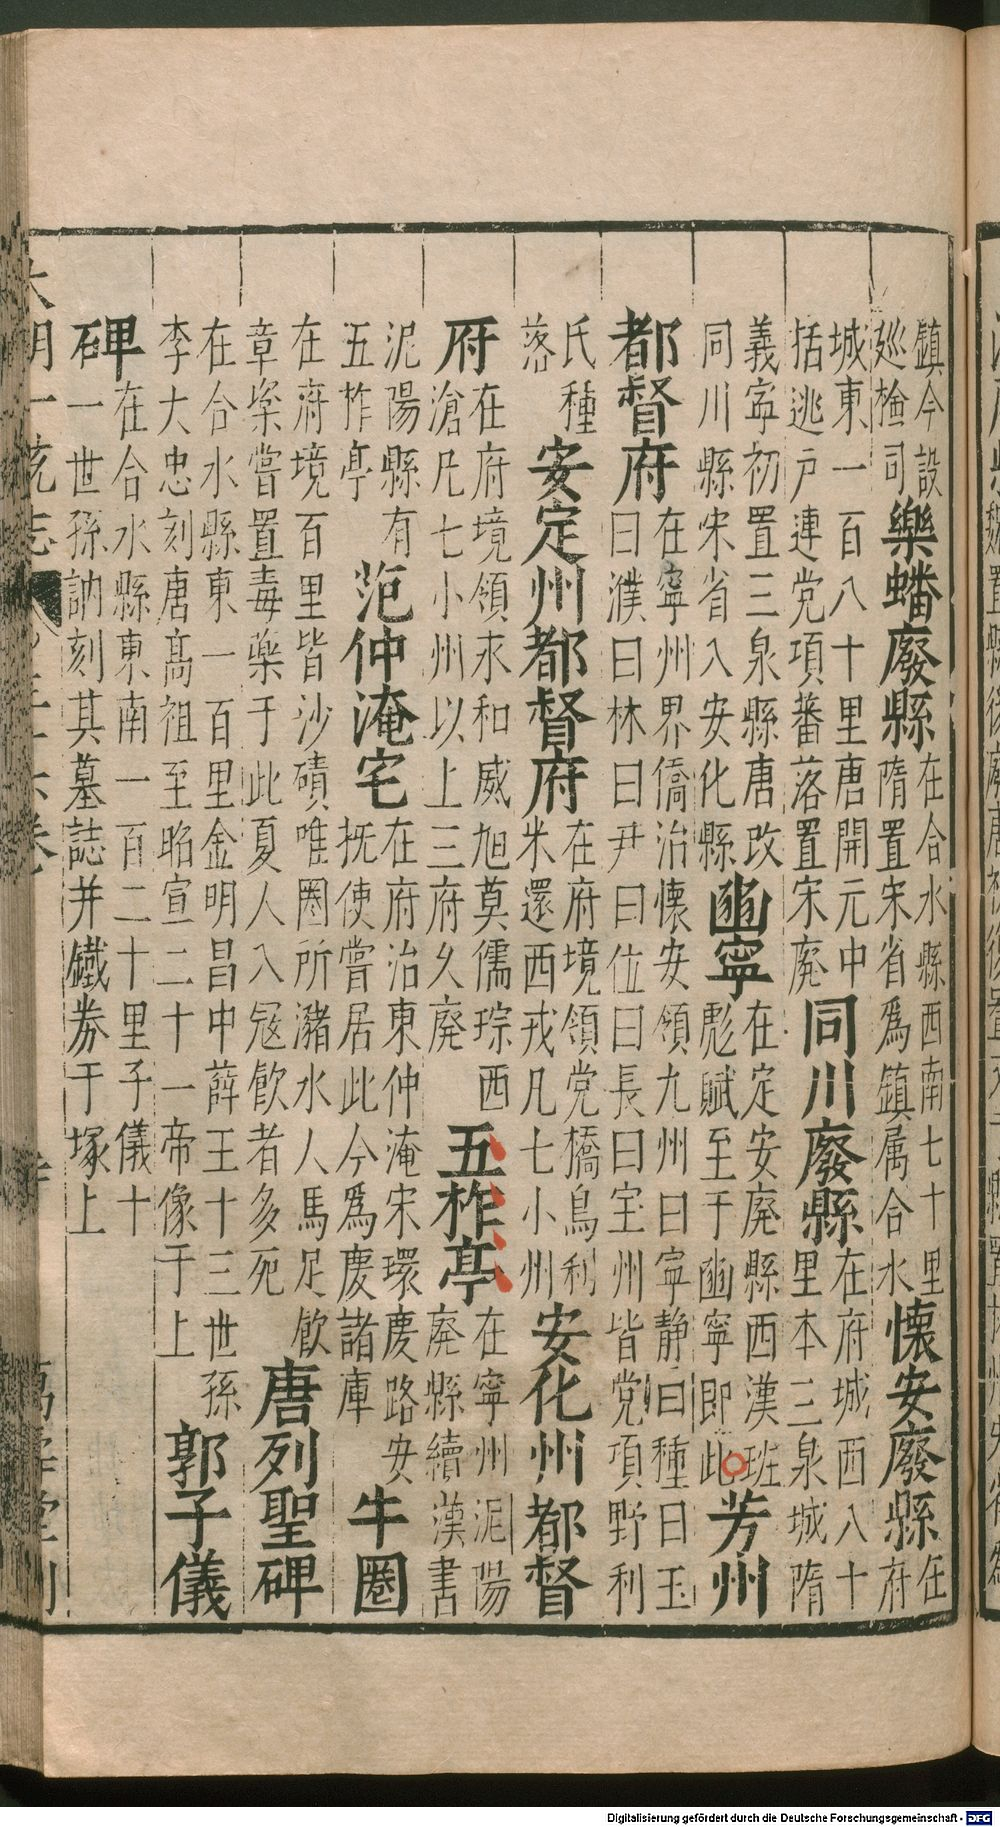 鎮今設
廵檢司
樂蟠廢縣
在合水縣西南七十里
隋置宋省爲鎮属合水
懷安廢縣
在府
城東一百八十里唐開元中
括逃戸連党項蕃落置宋廢
同川廢縣
在府城西八十
里本三泉城隋
義寧初置三泉縣唐改
同川縣宋省入安化縣
豳寧
在定安廢縣西漢班
彪賦至于豳寧即此
芳州
都督府
在寧州界僑治懷安領九州曰寧静曰種曰玉
曰濮曰林曰尹曰位曰長曰宝州皆党項野利
氏種
落
安定州都督府
在府境領党橋烏利
米還西戎凡七小州
安化州都督
府
在府境領永和威旭莫儒琮西
滄凡七小州以上三府久廢
五柞亭
在寧州泥陽
廢縣續漢書
泥陽縣有
五柞亭
范仲淹宅
在府治東仲淹宋環慶路安
抚使嘗居此今爲慶諸庫
牛圈
在府境百里皆沙磧唯圈所瀦水人馬足飮
章楶嘗置毒藥于此夏人入冦飮者多死
唐列聖碑
在合水縣東一百里金明昌中薛王十三世孫
李大忠刻唐高祖至昭宣二十一帝像于上
郭子儀
碑
在合水縣東南一百二十里子儀十
一世孫訥刻其墓誌并鐵券于塚上
大明一統志
Digitalisierung gefördert durch die Deutsche Forschungsgemeinschaft - DFG